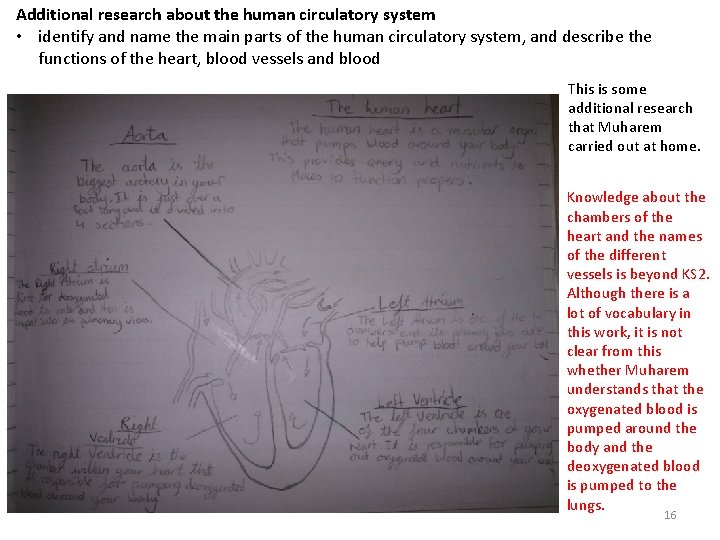 Additional research about the human circulatory system
• identify and name the main parts of the human circulatory system, and describe the
functions of the heart, blood vessels and blood
This is some
additional research
that Muharem
carried out at home.
Knowledge about the
chambers of the
heart and the names
of the different
vessels is beyond KS2.
Although there is a
lot of vocabulary in
this work, it is not
clear from this
whether Muharem
understands that the
oxygenated blood is
pumped around the
body and the
deoxygenated blood
is pumped to the
lungs.
16
The human heart
The human heart is a muscular organ
that pumps blood around your body.
This provides and nutrients to
places to function propers.
Aorta
The aorta is the
biggest artery in your
body. It is just over a
foot long and is divided into
4 sections.
Right atrium
The Right Atrium is
first for deoxygenated
blood to enter and then is
into the pulmonary
Left Atrium
The Left Atrium is one of the
chambers and its primary are
to help pump blood around your
Left Ventricle
The left Ventricle is one
of the four chambers of your
heart. It is responsible for pumping
out oxygenated blood around your
Right
Ventricle
The right Ventricle is the
chamber within your heart that
is responsible for pumping deoxygenated
blood around your body